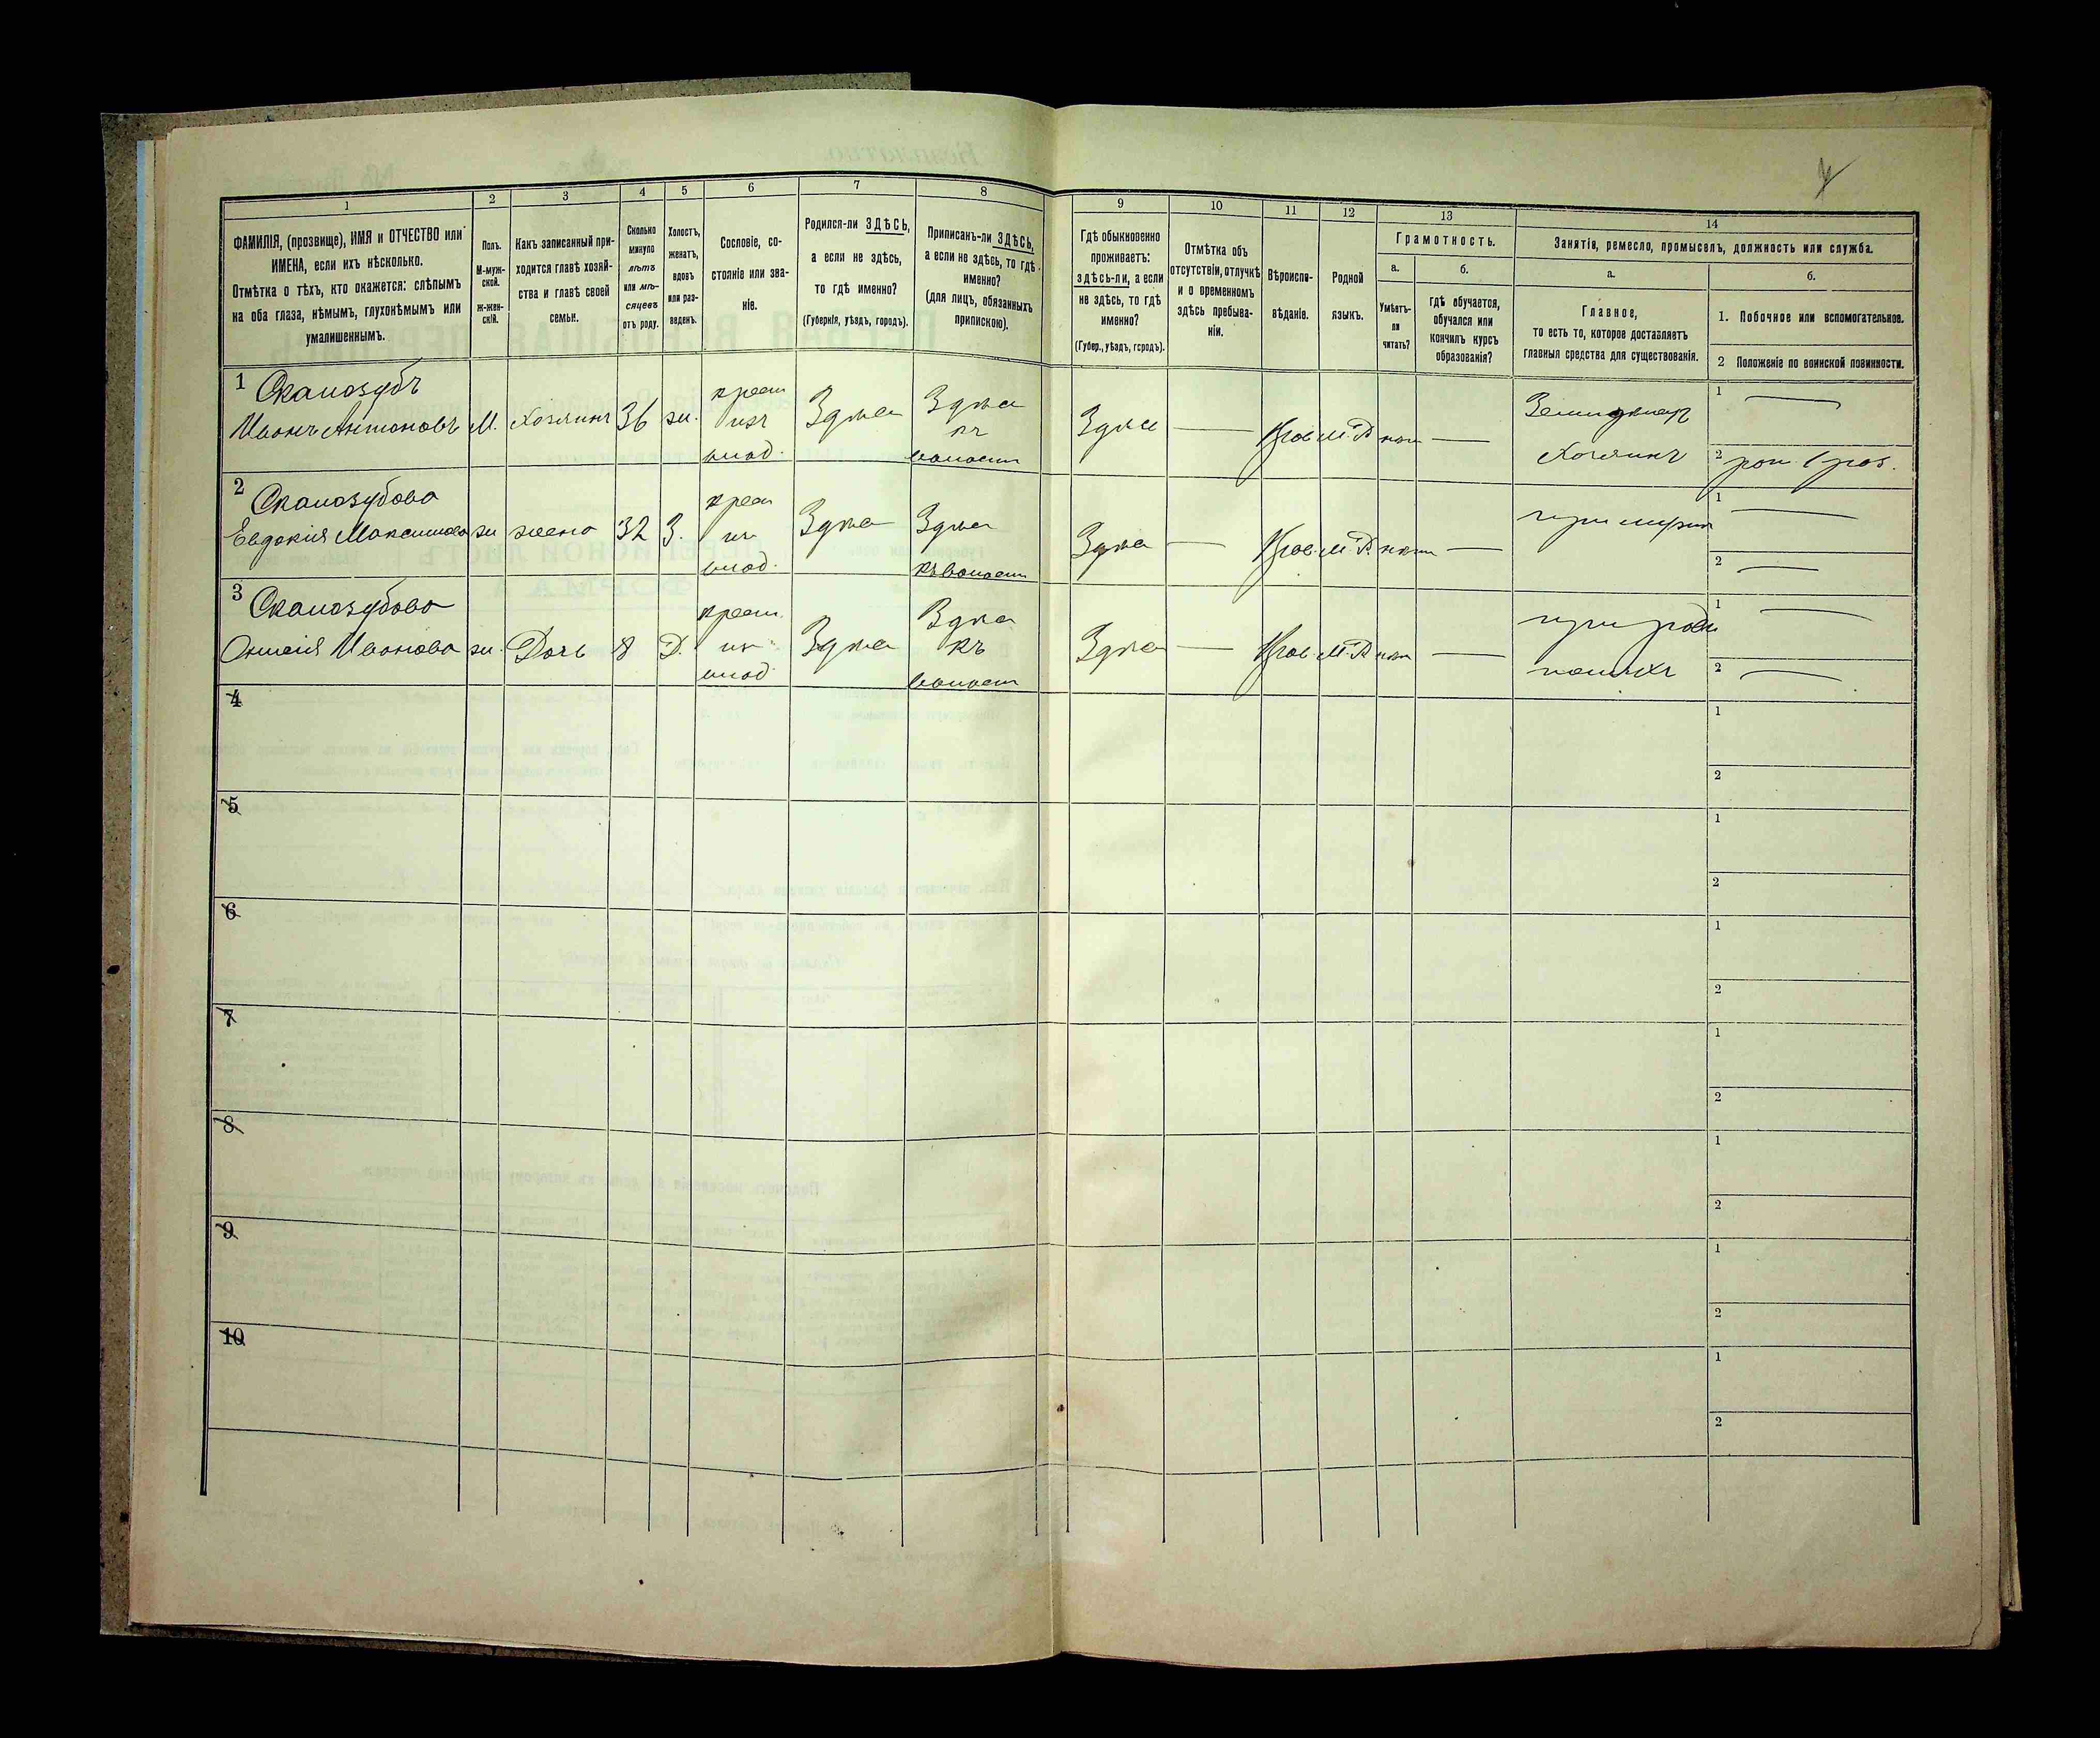 1
2
3
4
5
6
7
8
9
10
11
12
13
14
ФАМИЛІЯ, (прозвище), ИМЯ и ОТЧЕСТВО или
ИМЕНА, если ихъ нѣсколько.
Отмѣтка о тѣхъ, кто окажется: слѣпымъ
на оба глаза, нѣмымъ, глухонѣмымъ или
умалишеннымъ.
Полъ.
М-муж-
ской.
Ж-жен-
скій.
Какъ записанный при-
ходится главѣ хозяй-
ства и главѣ своей
семьи.
Сколько
минуло
лѣтъ
или мѣ-
сяцевъ
отъ роду.
Холостъ,
женатъ,
вдовъ
или раз-
веденъ.
Сословіе, со-
стояніе или зва-
ніе.
Родился-ли ЗДѢСЬ,
а если не здѣсь,
то гдѣ именно?
(Губернія, уѣздъ, городъ).
Приписанъ-ли ЗДѢСЬ,
а если не здѣсь, то гдѣ
именно?
(для лицъ, обязанныхъ
припискою).
Гдѣ обыкновенно
проживаетъ:
здѣсь-ли, а если
не здѣсь, то гдѣ
именно?
(Губер., уѣздъ, городъ).
Отмѣтка объ
отсутствіи, отлучкѣ
и о временномъ
здѣсь пребыва-
ніи.
Вѣроиспо-
вѣданіе.
Родной
языкъ.
Грамотность.
а.
б.
Умѣетъ-
ли
читать?
гдѣ обучается,
обучался или
кончилъ курсъ
образованія?
Занятія, ремесло, промыселъ, должность или служба.
а.
б.
Главное,
то есть то, которое доставляетъ
главныя средства для существованія.
1. Побочное или вспомогательное.
2 Положеніе по воинской повинности.
1 Скалозубъ
Иванъ Антоновъ М. Хозяинъ 36 ж.
крест
изъ
влад.
Здѣсь
Здѣсь
къ
волости
Здѣсь
Прав. М. Р. нѣт
Земледѣлец
Хозяинъ
1
2
2 Скалозубова
Евдокия Максимова ж жена 32 З.
крест
из
влад.
Здѣсь
Здѣсь
къ волости
Здѣсь
Прав. М. Р. нѣт
при мужѣ
1
2
3 Скалозубова
Иванова ж. Дочь 8 Д.
крест.
из
влад
Здѣсь
Здѣсь
къ
волост
Здѣсь
Прав. М. Р. нѣт
при роди
телях
1
2
4
1
2
5
1
2
6
1
2
7
1
2
8
1
2
9
1
2
10
1
2